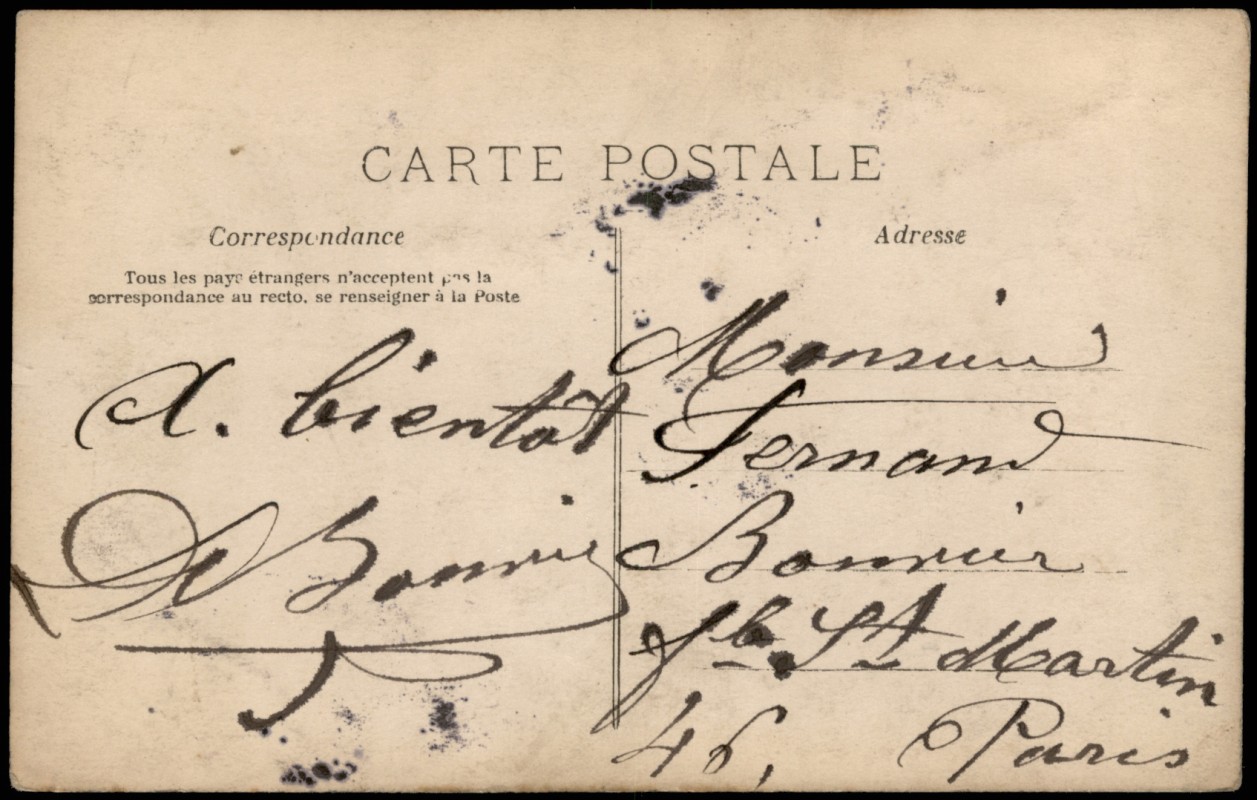 CARTE POSTALE
Correspondance
Tous les pays étrangers n'acceptent pas la
correspondance au recto, se renseigner à la Poste
A. bientôt
Adresse
Monsieur
Fernand
Bonnier
Fb. St Martin
46, Paris